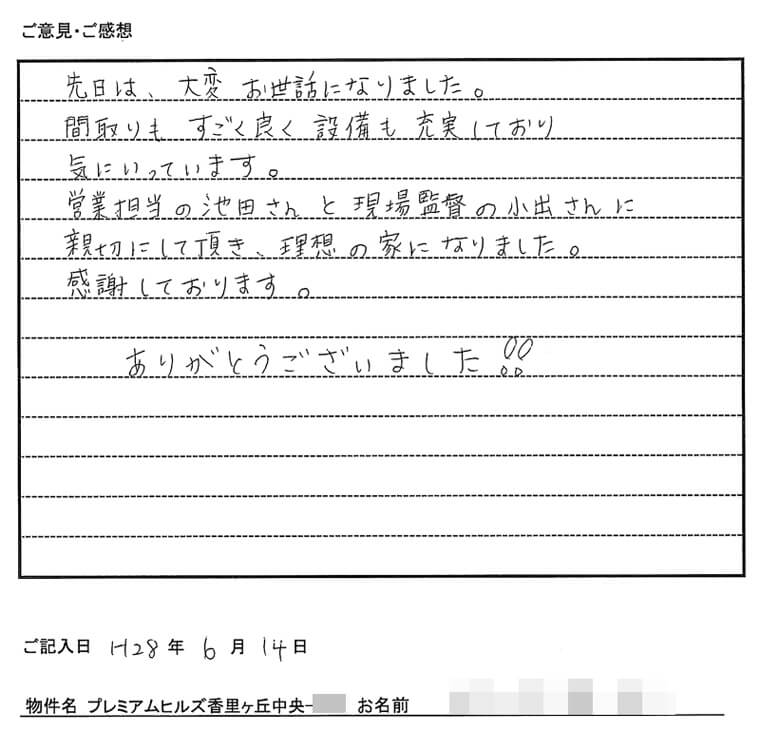 ご意見・ご感想
先日は、大変 お世話になりました。
間取りも すごく良く 設備も 充実しており
気にいっています。
営業担当の池田さんと現場監督の小出さんに
親切にして頂き、理想の家になりました。
感謝しております。
ありがとうございました!!
ご記入日 H28 年 6 月 14 日
物件名 プレミアムヒルズ香里ヶ丘中央- お名前